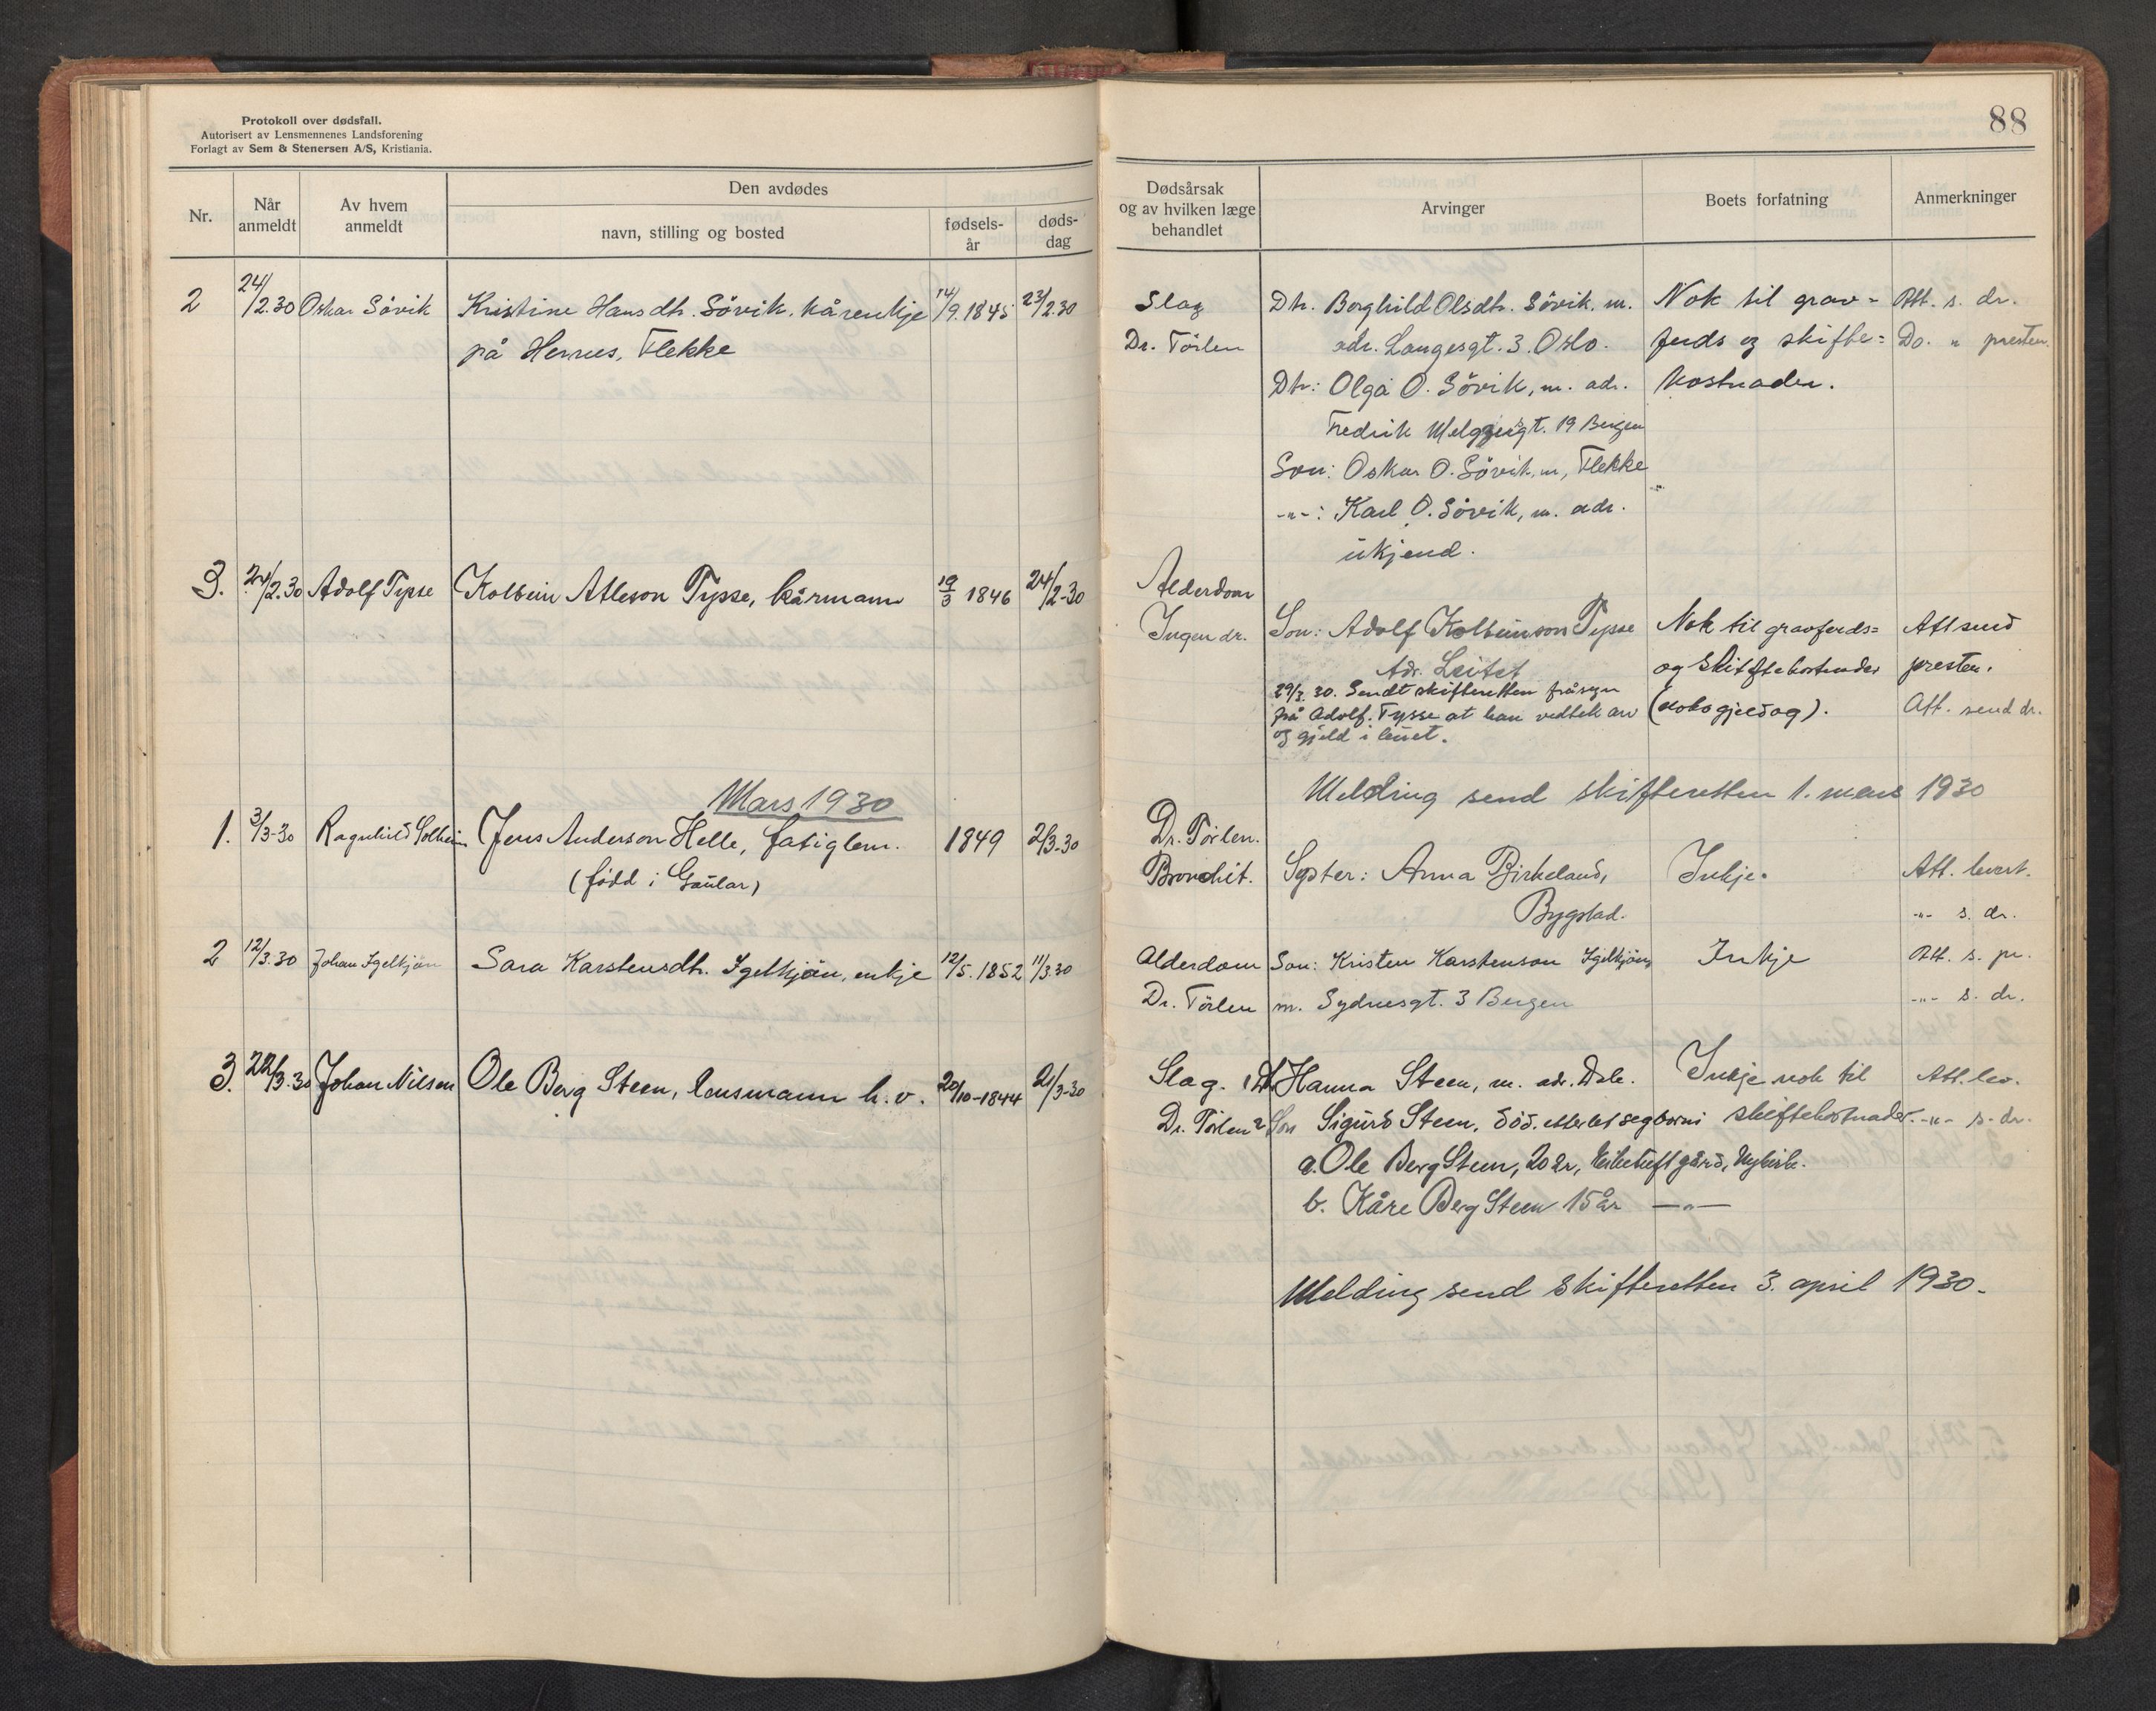 Protokoll over dødsfall.
Autorisert av Lensmennenes Landsforening
Forlagt av Sem & Stenersen A/S, Kristiania.
Nr.
Når anmeldt
Av hvem anmeldt
Den avdødes
navn, stilling og bosted
fødselsår
dødsdag
2 24/2.30 Oskar Sövik Kristine Hansdtr. Sövik, kårenkje 14/9.1845 23/2.30
på Hernes, Flekke
3. 24/2.30 Adolf Tysse Kolbein Atleson Tysse, kårmann 19/3 1846 24/2-30
Mars 1930
1. 3/3-30 Ragnhild Solheim Jens Anderson Helle, fatiglem. 1849 2/3-30
(född i Gaular)
2 12/3.30 Johan Igelkjön Sara Karstensdtr. Igelkjön, enkje 12/5.1852 11/3.30
3. 22/3.30 Johan Nilsen Ole Berg Steen, lensmann h.v. 20/10-1844 21/3-30
88
Dødsårsak
og av hvilken læge
behandlet
Arvinger
Boets forfatning
Anmerkninger
Slag Dtr. Borghild Olsdtr. Sövik. m. Nok til grav= Att. s. dr.
Dr. Törlen adr. Langesgt. 3. Oslo. ferds og skifte= Do. " presten.
Dtr: Olga O. Sövik, m. adr. kostnader.
Fredrik Melgzergt. 19 Bergen
Son: Oskar O. Sövik, m, Flekke
-"-: Karl O. Sövik, m. adr.
ukjend.
Alderdom
Ingen dr. Son: Adolf Kolbeinson Tysse Nok til gravferds= Att send
Adr. Leitet og Skiftekostnader presten.
29/3.30. Sendt skifteretten fråsegn
på Adolf Tysse at han vedtek arv (noko gjeld og). Att. send dr.
og gjeld i buet.
Melding send skifteretten 1. mars 1930
Dr. Törlen.
Bronchit. Syster: Anna Birkeland, Inkje. Att. levert.
Bygstad. -"- s. dr.
Alderdom Son: Kristen Karstenson Igelkjön, Inkje Att. s. pr.
Dr. Törlen m. Sydnesgt. 3 Bergen -"- s. dr.
Slag. 1 Dtr Hanna Steen, m. adr. Dale. Inkje nok til Att. lev.
Dr. Törlen 2 Son Sigurd Steen, död. etterlet seg borni skiftekostnader. -"- s. dr.
a. Ole Berg Steen, 20 år, Eiketuft gård, Nykirk.
b. Kåre Berg Steen 15 år —"—
Melding send skifteretten 3. april 1930.